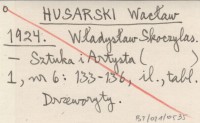 HUSARSKI Wacław
1924. Władysław Skoczylas.
— Sztuka i Artysta ( )
1, nr 6: 133-136, il., tabl.
Drzeworyty.